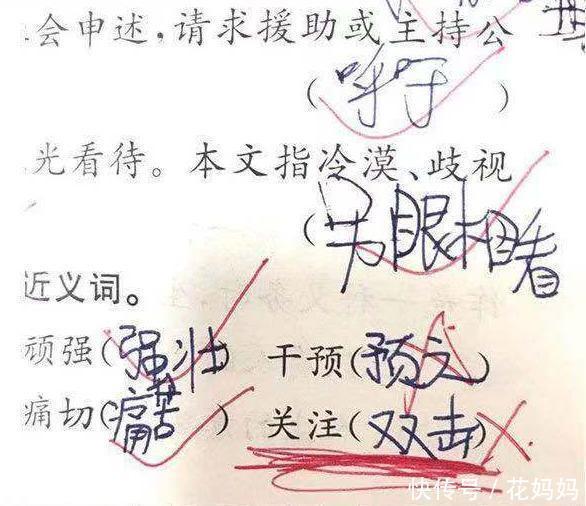 会申述,请求援助或主持公
(呼吁)
光看待。本文指冷漠、歧视
(另眼相看
近义词。
顽强(强壮) 干预(预文)
痛切(痛苦) 关注(双击)
快传号/花妈妈